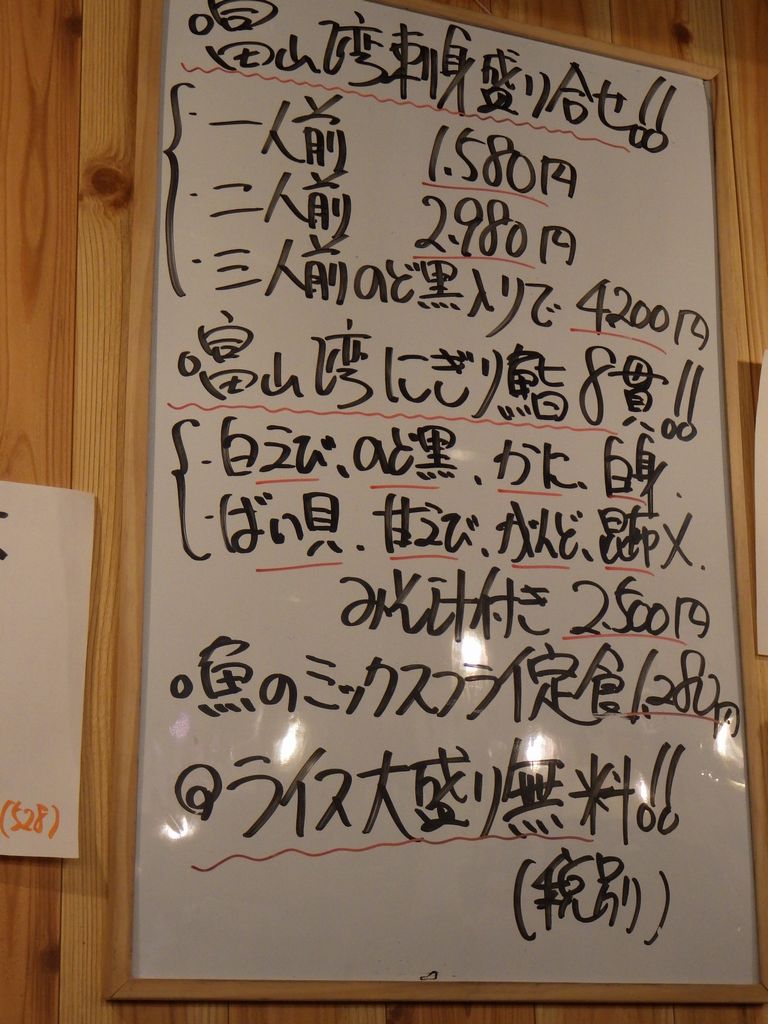 富山湾刺身盛り合せ!!
・一人前 1.580円
・二人前 2.980円
・三人前のど黒入りで 4.200円
富山湾にぎり鮨8貫!!
・白えび、のど黒、かに、白身、
・ばい貝、甘えび、がんど、昆布〆、
みそ汁付き 2.500円
魚のミックスフライ定食 1.280円
ライス大盛り無料!!
(税別)
(528)